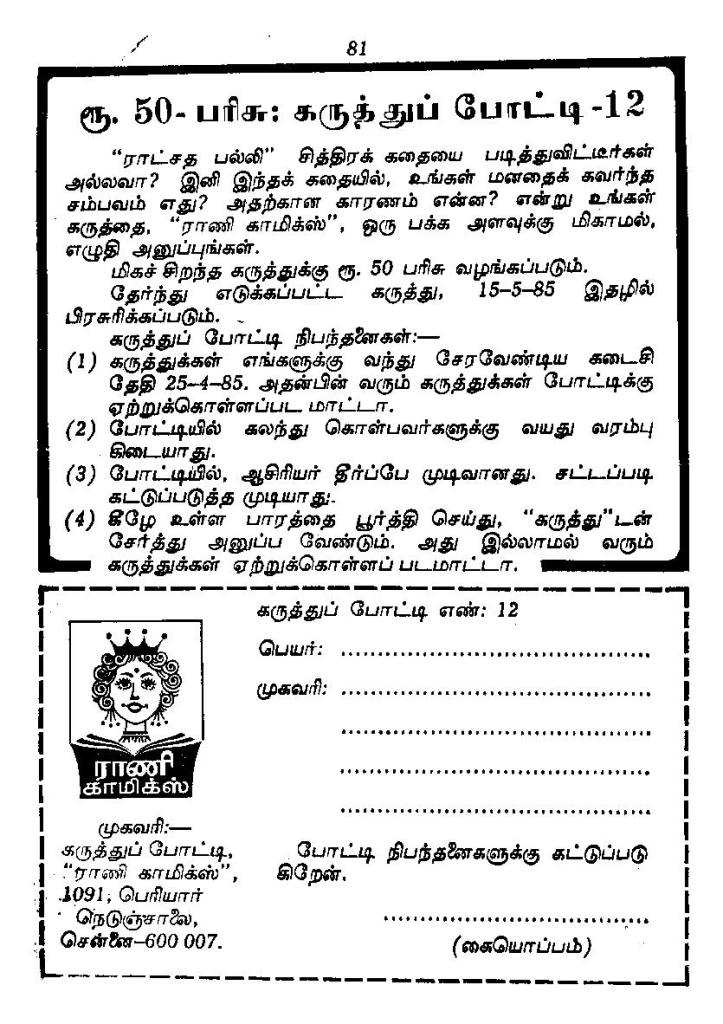 81
ரூ. 50- பரிசு: கருத்துப் போட்டி -12
“ராட்சத பல்லி” சித்திரக் கதையை படித்துவிட்டீர்கள்
அல்லவா? இனி இந்தக் கதையில், உங்கள் மனதைக் கவர்ந்த
சம்பவம் எது? அதற்கான காரணம் என்ன? என்று உங்கள்
கருத்தை, “ராணி காமிக்ஸ்”, ஒரு பக்க அளவுக்கு மிகாமல்,
எழுதி அனுப்புங்கள்.
மிகச் சிறந்த கருத்துக்கு ரூ. 50 பரிசு வழங்கப்படும்.
தேர்ந்து எடுக்கப்பட்ட கருத்து, 15–5–85 இதழில்
பிரசுரிக்கப்படும்.
கருத்துப் போட்டி நிபந்தனைகள்:—
(1) கருத்துக்கள் எங்களுக்கு வந்து சேரவேண்டிய கடைசி
தேதி 25–4–85. அதன்பின் வரும் கருத்துக்கள் போட்டிக்கு
ஏற்றுக்கொள்ளப்பட மாட்டா.
(2) போட்டியில் கலந்து கொள்பவர்களுக்கு வயது வரம்பு
கிடையாது.
(3) போட்டியில், ஆசிரியர் தீர்ப்பே முடிவானது. சட்டப்படி
கட்டுப்படுத்த முடியாது.
(4) கீழே உள்ள பாரத்தை பூர்த்தி செய்து, “கருத்து”டன்
சேர்த்து அனுப்ப வேண்டும். அது இல்லாமல் வரும்
கருத்துக்கள் ஏற்றுக்கொள்ளப் படமாட்டா.
கருத்துப் போட்டி எண்: 12
பெயர்: ............................................
முகவரி: ............................................
............................................
............................................
............................................
ராணி
காமிக்ஸ்
முகவரி:—
கருத்துப் போட்டி,
“ராணி காமிக்ஸ்”,
1091, பெரியார்
நெடுஞ்சாலை,
சென்னை–600 007.
போட்டி நிபந்தனைகளுக்கு கட்டுப்படு
கிறேன்.
............................................
(கையொப்பம்)